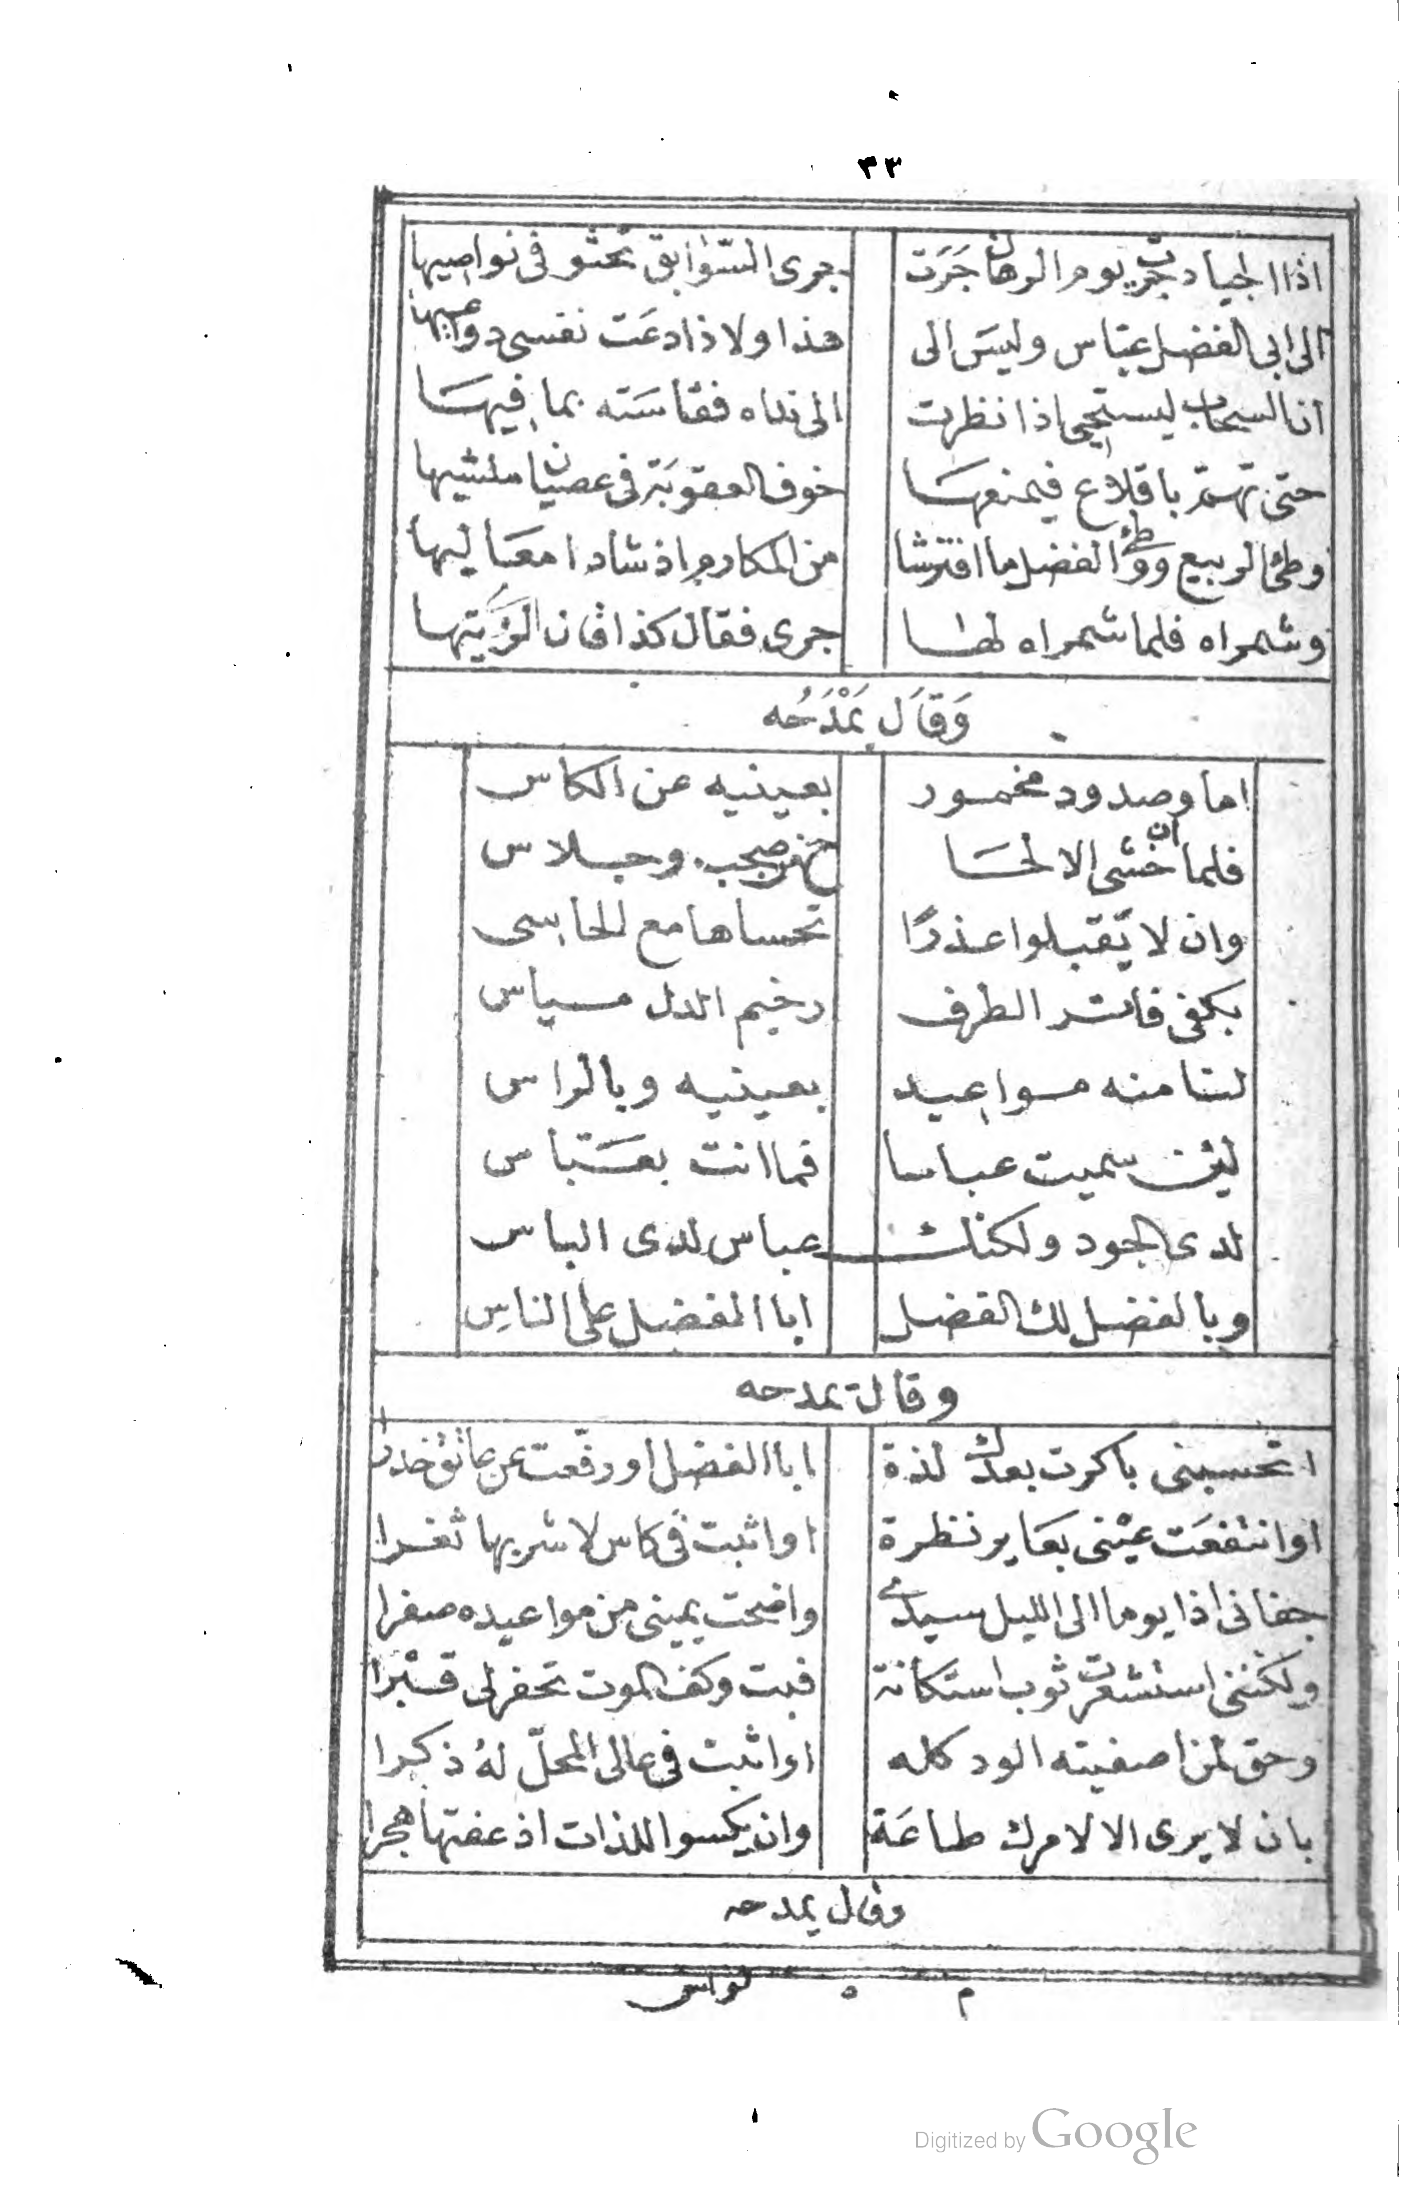 ٣٣
اذا الجياد جرت يوم الرهان جَرَت جرى السّوابق تحثو فى نواصيها
الى ابى الفضل عبّاس وليسَ الى هذا ولا ذا دعَت نفسى دواعيها
ان السحاب ليستحيى اذا نظرت الى نداه فقاسَته بما فيهَا
حتى تهمّ باقلاع فيمنعهَا خوف العقوبَة فى عصيان منشيها
وطئ الربيع ووطئ الفضل ما افترشا من المكارم اذ شادا معَاليها
وشمراه فلما شمراه لها جرى فقال كذا فان
وَقاَل يَمْدَحُه
اما وصدود مخمور بعينيه عن الكاس
فلما ان خشى الالحَا ح من صحب وجلاس
وان لا يَقبلوا عذرًا تحساها مع الحاسى
بكفى فاتر الطرف رخيم الدل مياس
لنا منه مواعيد بعينيه وبالراس
لئن سميت عباسا فما انت بعَبّاس
لدى الجود ولكنك عباس لدى الباس
وبالفضل لك الفضل ابا الفضل على الناسِ
وقال يمدحه
اتحسبنى باكرت بعدك لذة ابا الفضل او رفّعت عن عاتق خدرا
او انتفعَت عيْنى بعَاير نظرة او اثبت فى كاس لاشربها ثغرا
جفانى اذا يوما الى الليل سيدى واضحت يمينى من مواعيده صفرا
ولكننى استشعرت ثوب استكانة فبت وكف الموت تحفر لى قبْرا
وحق لمن اصفيته الود كله اواثبت فى عالى المحلّ لهُ ذكرا
بان لا يرى الا لامرك طاعَة وان يكسو اللذات اذ عفتها هجرا
وقال يمدحه
م ٥ نواس
Digitized by Google